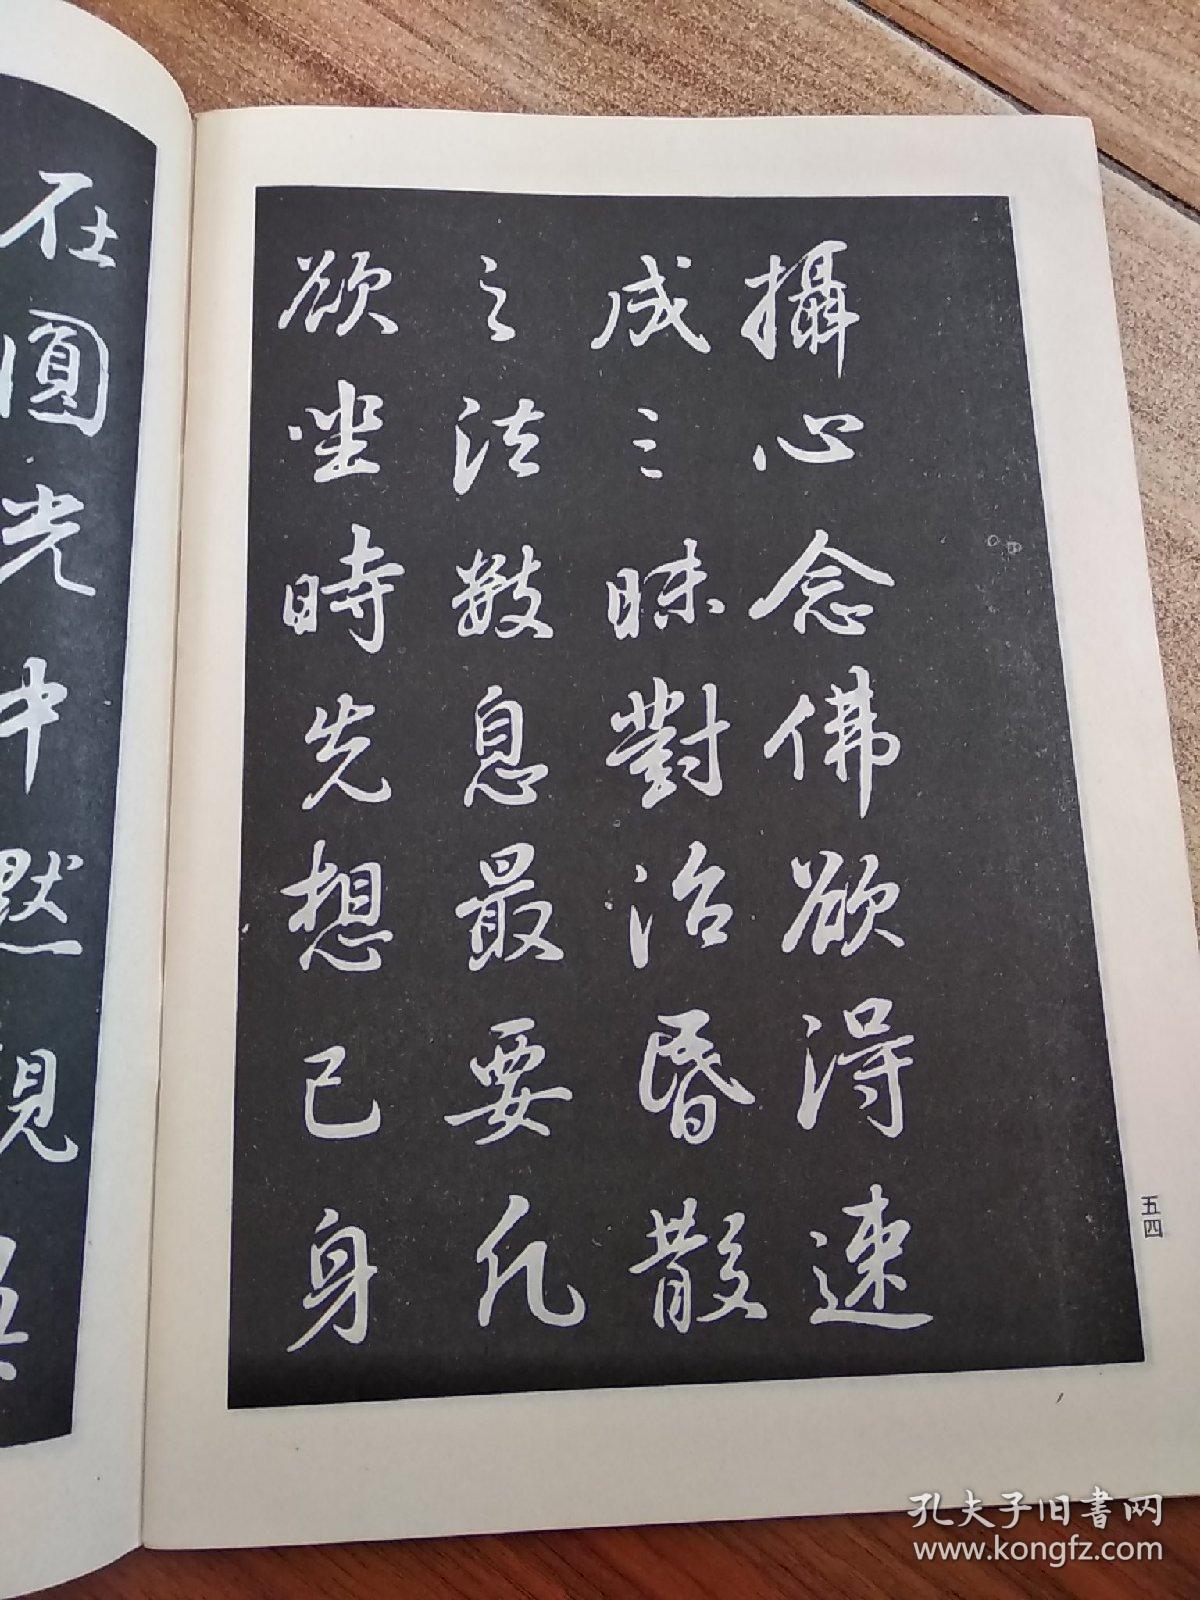 攝心念佛欲得速
成三昧對治昏散
之法數息最要凡
欲坐時先想己身
在圓光中默觀
五四
孔夫子旧書网
www.kongfz.com